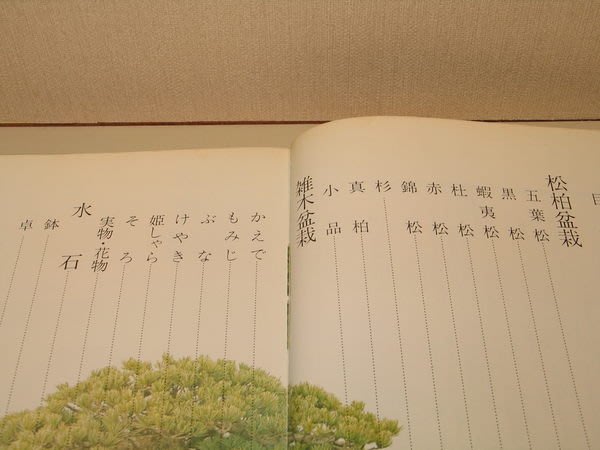 目
松柏盆栽
五葉松
黒松
蝦夷松
杜松
赤松
錦松
杉
真柏
小品
雑木盆栽
かえで
もみじ
ぶな
けやき
姫しゃら
そろ
実物・花物
水石
鉢
卓